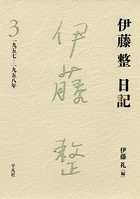 伊藤 整 日記
3
一九五七―一九五八年
伊藤整
伊藤 礼 (編)
平凡社